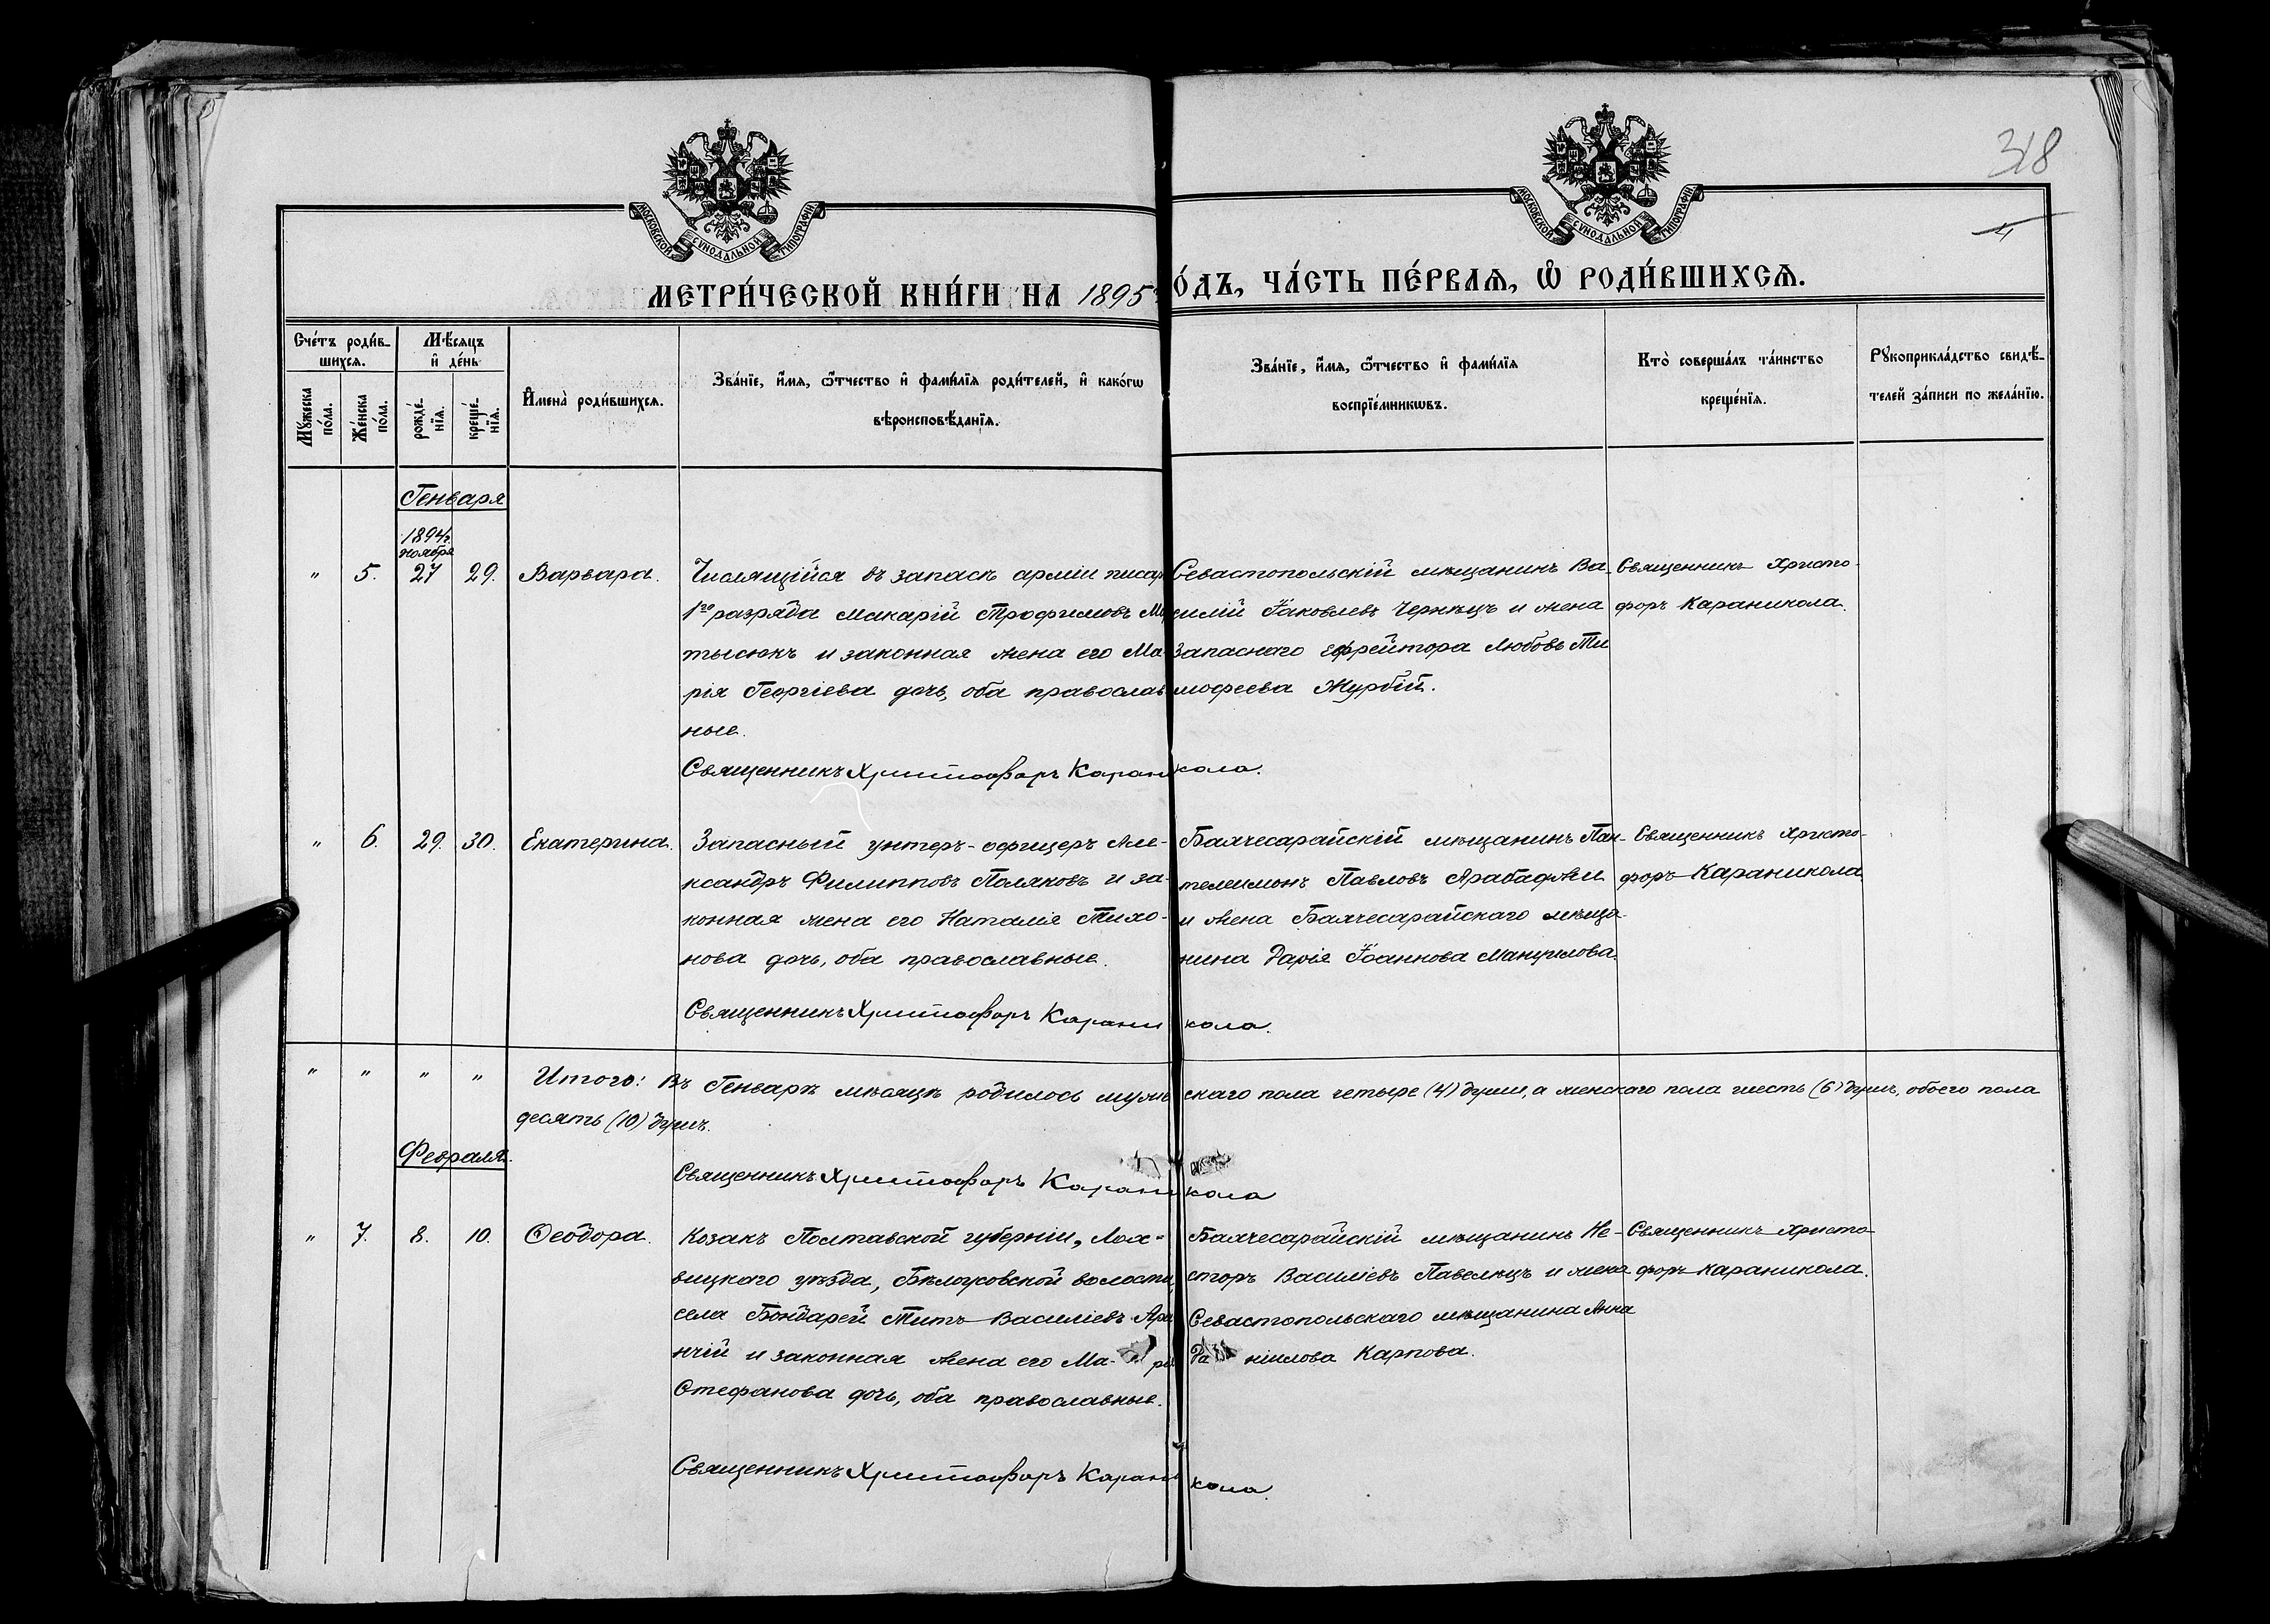 318
4
МОСКОВСКОЙ СѴНОДАЛЬНОЙ ТИПОГРАФІИ
МОСКОВСКОЙ СѴНОДАЛЬНОЙ ТИПОГРАФІИ
МЕТРИ́ЧЕСКОЙ КНИ́ГИ НА 1895 г ОДЪ, ЧА́СТЬ ПЕ́РВАѦ, Ѽ РОДИ́ВШИХСѦ.
Сче́тъ роди́в-
шихсѧ.
Мꙋ́жеска по́ла.
Же́нска по́ла.
Мѣ́сѧцъ
и҆ де́нь
рожде́-нїѧ.
креще́-нїѧ.
И҆мена̀ роди́вшихсѧ.
Зва́нїе, и҆́мѧ, ѻ҆́тчество и҆ фами́лїѧ роди́телей, и҆ како́гѡ
вѣроисповѣ́данїѧ.
Зва́нїе, и҆́мѧ, ѻ҆́тчество и҆ фами́лїѧ
воспрїе́мникѡвъ.
Кто̀ соверша́лъ та́инство
креще́нїѧ.
Рꙋкоприкла́дство свидѣ́-
телей за́писи по жела́нїю.
Генваря
1894 г.
ноября
" 5. 27 29. Варвара.
Числящійся въ запасѣ арміи писарь
1го разряда Макарій Трофимовъ Ма
тысюкъ и законная жена его Ма-
рія Георгіева дочь, оба православ
ные.
Севастопольскій мѣщанинъ Ва-
силій Іаковлевъ Чернѣцъ и жена
запаснаго ефрейтора Любовь Ти
мофеева Журбій.
Священникъ Христо-
форъ Караникола.
Священникъ Христофоръ Караникола.
" 6. 29. 30. Екатерина.
Запасный унтеръ-офицеръ Але-
ксандръ Филипповъ Поляковъ и за-
конная жена его Наталія Тихо-
нова дочь, оба православные.
Бахчесарайскій мѣщанинъ Пан-
телеимонъ Павловъ Арабаджи
и жена Бахчесарайскаго мѣща-
нина Дарія Іоаннова Мангупова.
Священникъ Христо-
форъ Караникола
Священникъ Христофоръ Караникола.
" " " " Итого: Въ Генварѣ мѣсяцѣ родилось мужескаго пола четыре (4) души, а женскаго пола шесть (6) душъ, обоего пола
десять (10) душъ.
Священникъ Христофоръ Караникола
Февраля.
" 7. 8. 10. Ѳеодора.
Козакъ Полтавской губерніи, Лох-
вицкаго уѣзда, Бѣлоусовской волости,
села Бондарей Титъ Василіевъ
и законная жена его Ма-рія
Стефанова дочь, оба православные.
Бахчесарайскій мѣщанинъ Не-
сторъ Василіевъ Павелецъ и жена
Севастопольскаго мѣщанина Анна
Даніилова Карпова.
Священникъ Христо-
форъ Караникола.
Священникъ Христофоръ Караникола.